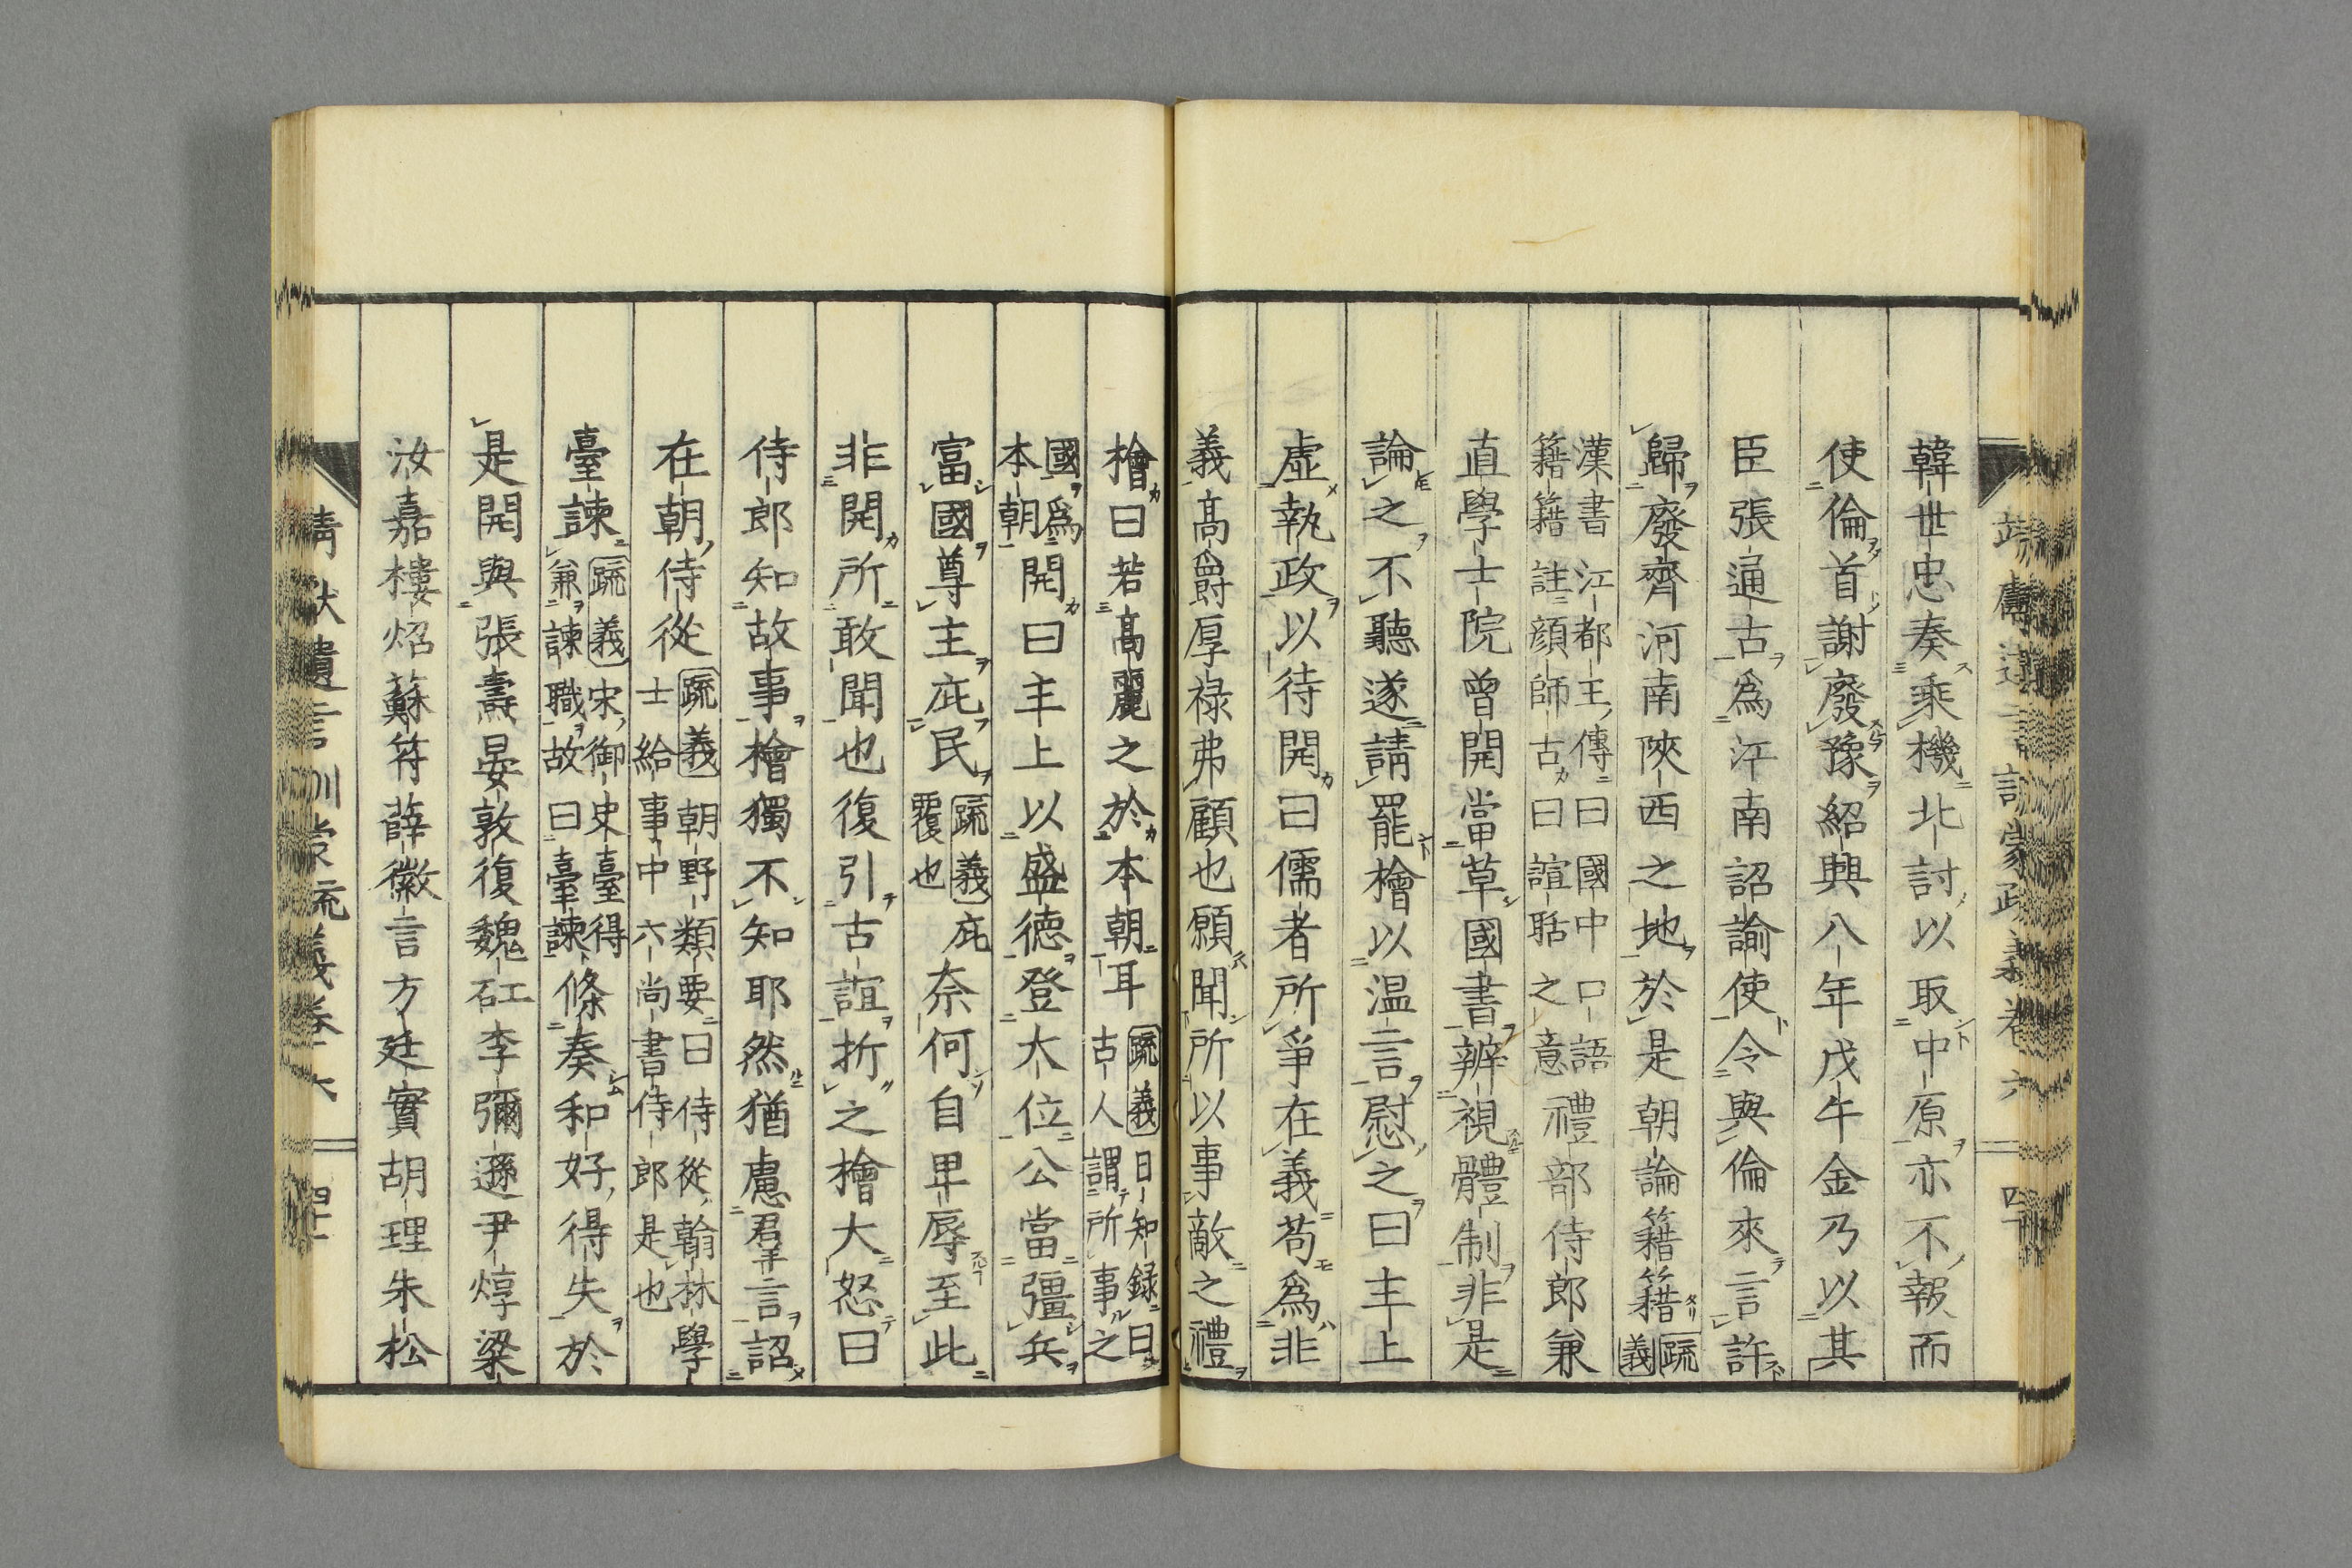 韓世忠奏乘機北討以取中原亦不報而
使倫首謝廢豫紹興八年戊午金乃以其
臣張通古爲江南詔諭使令與倫來言許
歸廢齊河南陝西之地於是朝論籍籍疏義
漢書江都王傳曰國中口語
籍籍註顔師古曰諠聒之意
禮部侍郎兼
直學士院曾開當草國書辨視體制非是
論之不聽遂請罷檜以温言慰之曰主上
虚執政以待開曰儒者所爭在義苟爲非
義高爵厚禄弗顧也願聞所以事敵之禮
檜曰若高麗之於本朝耳
疏義日知録曰
古人謂所事之
國爲
本朝
開曰主上以盛德登大位公當彊兵
富國尊主庇民
疏義庇
覆也
奈何自卑辱至此
非開所敢聞也復引古誼折之檜大怒曰
侍郎知故事檜獨不知耶然猶慮羣言詔
在朝侍從
疏義朝野類要曰侍從翰林學
士給事中六尚書侍郎是也
臺諫
疏義宋御史臺得
兼諫職故曰臺諫
條奏和好得失於
是開與張壽晏敦復魏矼李彌遜尹焞梁
汝嘉樓炤蘇符薛徽言方廷實胡珵朱松